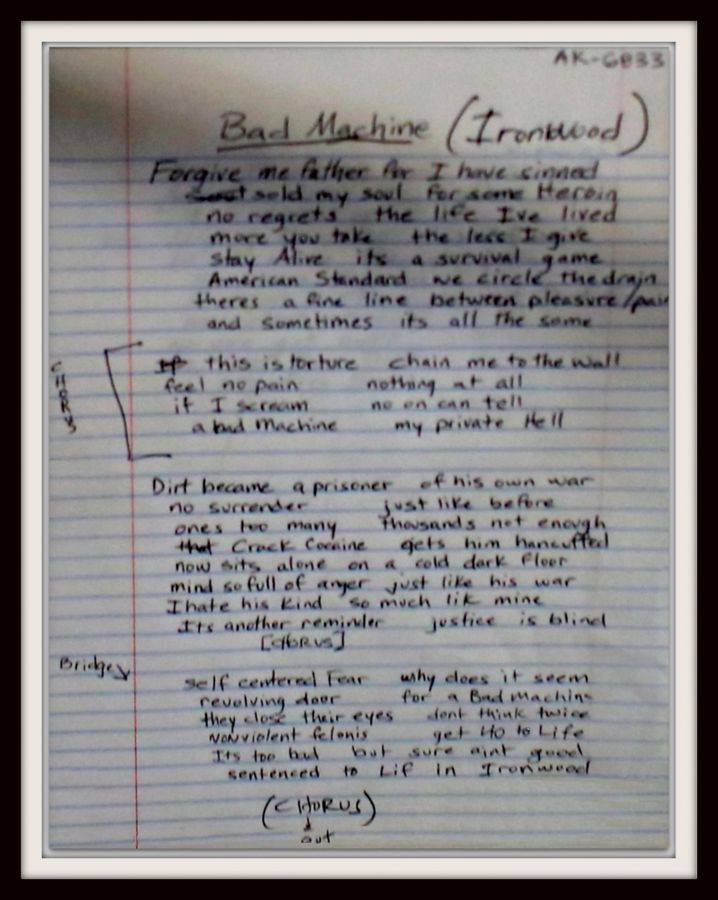 AK-6833
Bad Machine (Ironwood)
Forgive me father for I have sinned
sold my soul for some Heroin
no regrets the life I've lived
more you take the less I give
stay Alive its a survival game
American Standard we circle the drain
theres a fine line between pleasure/pain
and sometimes its all the same
CHORUS
If this is torture chain me to the wall
feel no pain nothing at all
if I scream no on can tell
a bad Machine my private Hell
Dirt became a prisoner of his own war
no surrender just like before
ones too many thousands not enough
that Crack Cocaine gets him hancuffed
now sits alone on a cold dark floor
mind so full of anger just like his war
I hate his kind so much lik mine
Its another reminder justice is blind
[CHORUS]
Bridge
self centered Fear why does it seem
revolving door for a Bad machine
they close their eyes dont think twice
NONviolent felonis get 40 to Life
Its too bad but sure aint good
sentenced to Lif in Ironwood
(CHORUS)
out